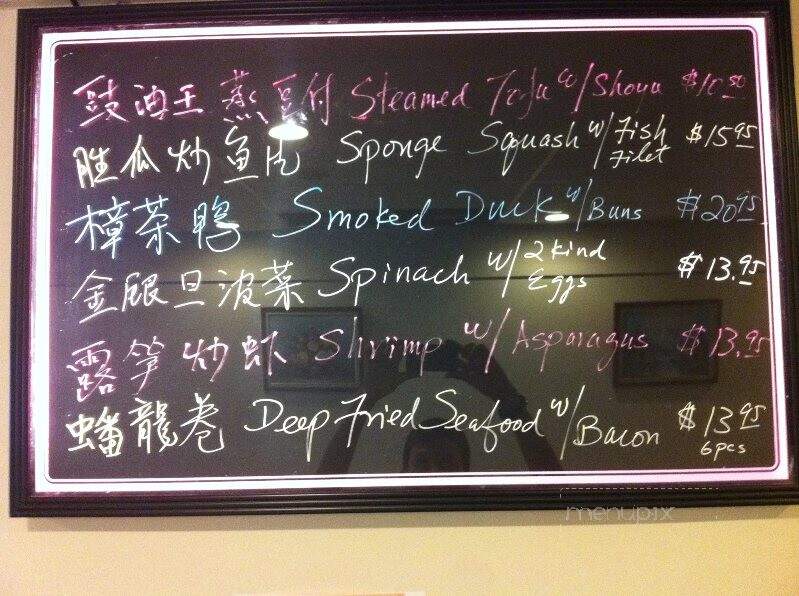 豉油王蒸豆付 Steamed Tofu w/ Shoyu $10.50
胜瓜炒魚片 Sponge Squash w/ Fish Filet $15.95
樟茶鸭 Smoked Duck w/ Buns $20.95
金銀旦波菜 Spinach w/ 2 kind Eggs $13.95
露笋炒虾 Shrimp w/ Asparagus $13.95
蟠龍卷 Deep Fried Seafood w/ Bacon $13.95
6pcs
menupix